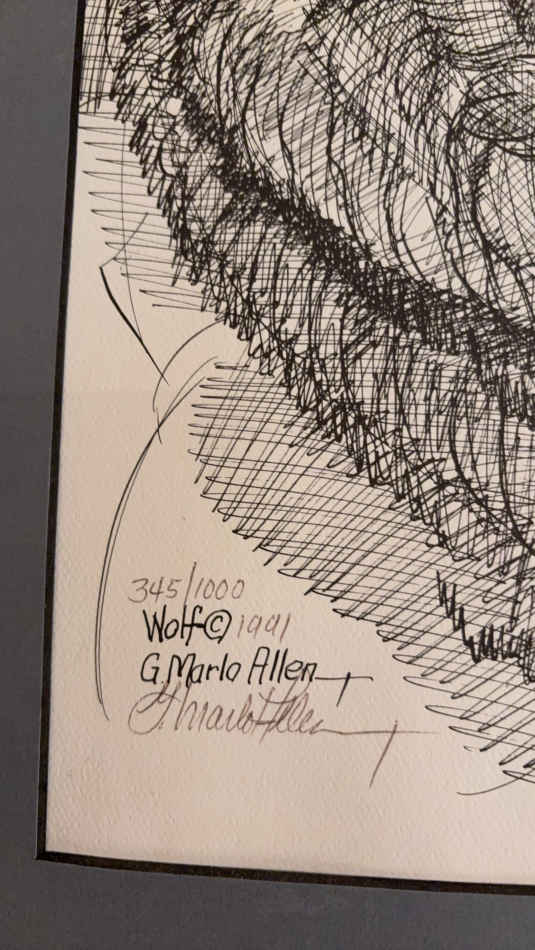 345/1000
Wolf © 1991
G. Marlo Allen
G. Marlo Allen